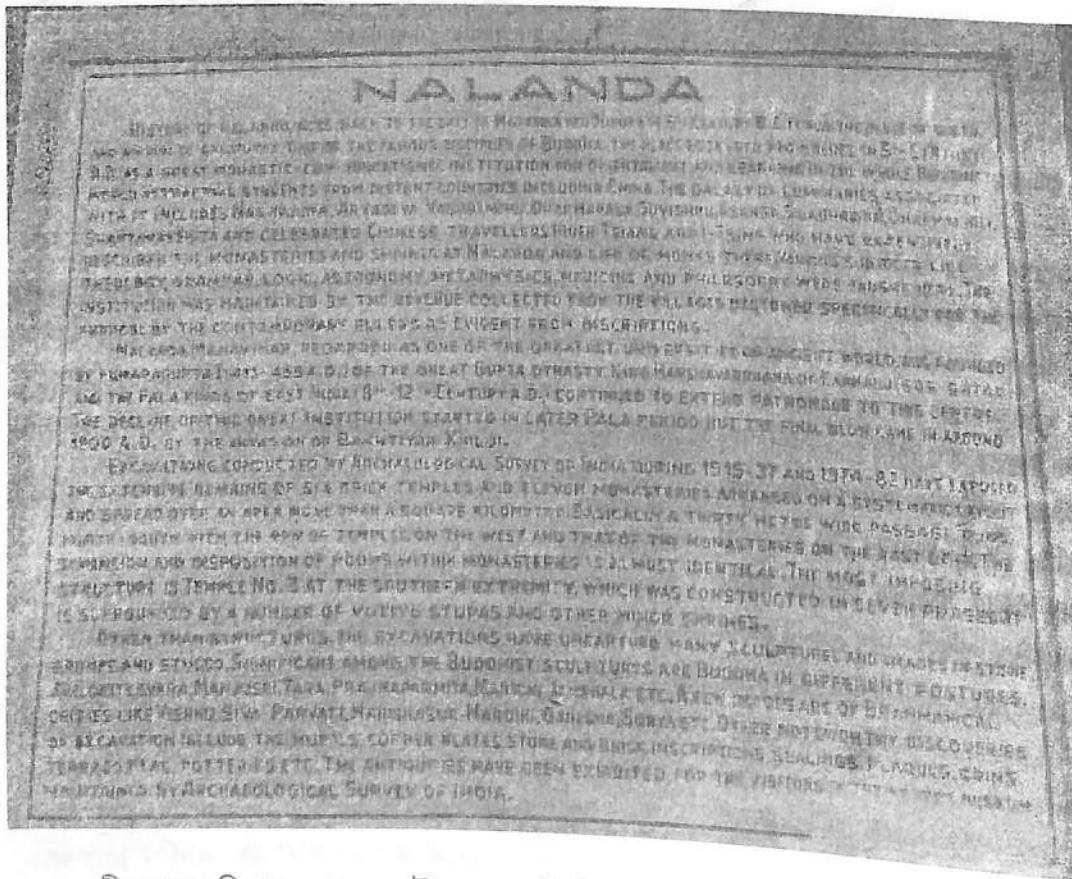 NALANDA
HISTORY OF NALANDA GOES BACK TO THE DAYS OF MAHAVIRA AND BUDDHA IN 6TH CENTURY B.C. THE PLACE OF BIRTH
AND NIRVANA OF ONE OF THE FAMOUS DISCIPLES OF BUDDHA. THE PLACE IN 5TH CENTURY
A.D. AS A GREAT MONASTIC-CUM-EDUCATIONAL INSTITUTION FOR ART AND LEARNING IN THE WHOLE BUDDHIST
WORLD ATTRACTING STUDENTS FROM DISTANT COUNTRIES INCLUDING CHINA. THE GALAXY OF LUMINARIES ASSOCIATED
WITH IT INCLUDES NAGARJUNA, ARYADEVA, VASUBANDHU, DHARMAPALA, SUVISHNU, ASANGA, SILABHADRA, DHARMAKIRTI,
SHANTARAKSHITA AND CELEBRATED CHINESE TRAVELLERS HIUEN TSIANG AND I-TSING WHO HAVE EXTENSIVELY
DESCRIBED THE MONASTERIES AND SHRINES AT NALANDA AND LIFE OF MONKS THERE. VARIOUS SUBJECTS LIKE
THEOLOGY, GRAMMAR, LOGIC, ASTRONOMY, METAPHYSICS, MEDICINE AND PHILOSOPHY WERE TAUGHT HERE. THE
INSTITUTION WAS MAINTAINED BY THE REVENUE COLLECTED FROM THE VILLAGES BESTOWED SPECIFICALLY FOR THE
PURPOSE BY THE CONTEMPORARY RULERS AS EVIDENT FROM INSCRIPTIONS.
NALANDA MAHAVIHAR, REGARDED AS ONE OF THE GREATEST UNIVERSITIES OF ANCIENT WORLD, WAS FOUNDED
BY KUMARAGUPTA I (413-455 A.D.) OF THE GREAT GUPTA DYNASTY. KING HARSHAVARDHANA OF KANNAUJ (606-647 A.D.)
AND THE PALA KINGS OF EAST INDIA (8TH-12TH CENTURY A.D.) CONTINUED TO EXTEND PATRONAGE TO THIS CENTRE.
THE DECLINE OF THIS GREAT INSTITUTION STARTED IN LATER PALA PERIOD BUT THE FINAL BLOW CAME IN AROUND
1200 A.D. BY THE INVASION OF BAKHTIYAR KHILJI.
EXCAVATIONS CONDUCTED BY ARCHAEOLOGICAL SURVEY OF INDIA DURING 1915-37 AND 1974-82 HAVE EXPOSED
THE EXTENSIVE REMAINS OF SIX BRICK TEMPLES AND ELEVEN MONASTERIES ARRANGED ON A SYSTEMATIC LAYOUT
AND SPREAD OVER AN AREA MORE THAN A SQUARE KILOMETRE. BASICALLY A THIRTY METRE WIDE PASSAGE RUNS
NORTH-SOUTH WITH THE ROW OF TEMPLES ON THE WEST AND THAT OF THE MONASTERIES ON THE EAST OF IT. THE
DIMENSION AND DISPOSITION OF ROOMS WITHIN MONASTERIES IS ALMOST IDENTICAL. THE MOST IMPOSING
STRUCTURE IS TEMPLE NO. 3 AT THE SOUTHERN EXTREMITY, WHICH WAS CONSTRUCTED IN SEVEN PHASES. IT
IS SURROUNDED BY A NUMBER OF VOTIVE STUPAS AND OTHER MINOR SHRINES.
OTHER THAN STRUCTURES, THE EXCAVATIONS HAVE UNEARTHED MANY SCULPTURES AND IMAGES IN STONE
BRONZE AND STUCCO. SIGNIFICANT AMONG THE BUDDHIST SCULPTURES ARE BUDDHA IN DIFFERENT POSTURES,
MANJUSRI, TARA, PRAJNAPARMITA, MARICHI, JAMBHALA ETC. A FEW IMAGES ARE OF BRAHMANICAL
DEITIES LIKE VISHNU, SIVA-PARVATI, GANESHA, SURYA ETC. OTHER NOTEWORTHY DISCOVERIES
OF EXCAVATION INCLUDE THE MURALS, COPPER PLATES, STONE AND BRICK INSCRIPTIONS, SEALINGS, PLAQUES, COINS,
TERRACOTTAS, POTTERIES ETC. THE ANTIQUITIES HAVE BEEN EXHIBITED FOR THE VISITORS IN THE MUSEUM
MAINTAINED BY ARCHAEOLOGICAL SURVEY OF INDIA.